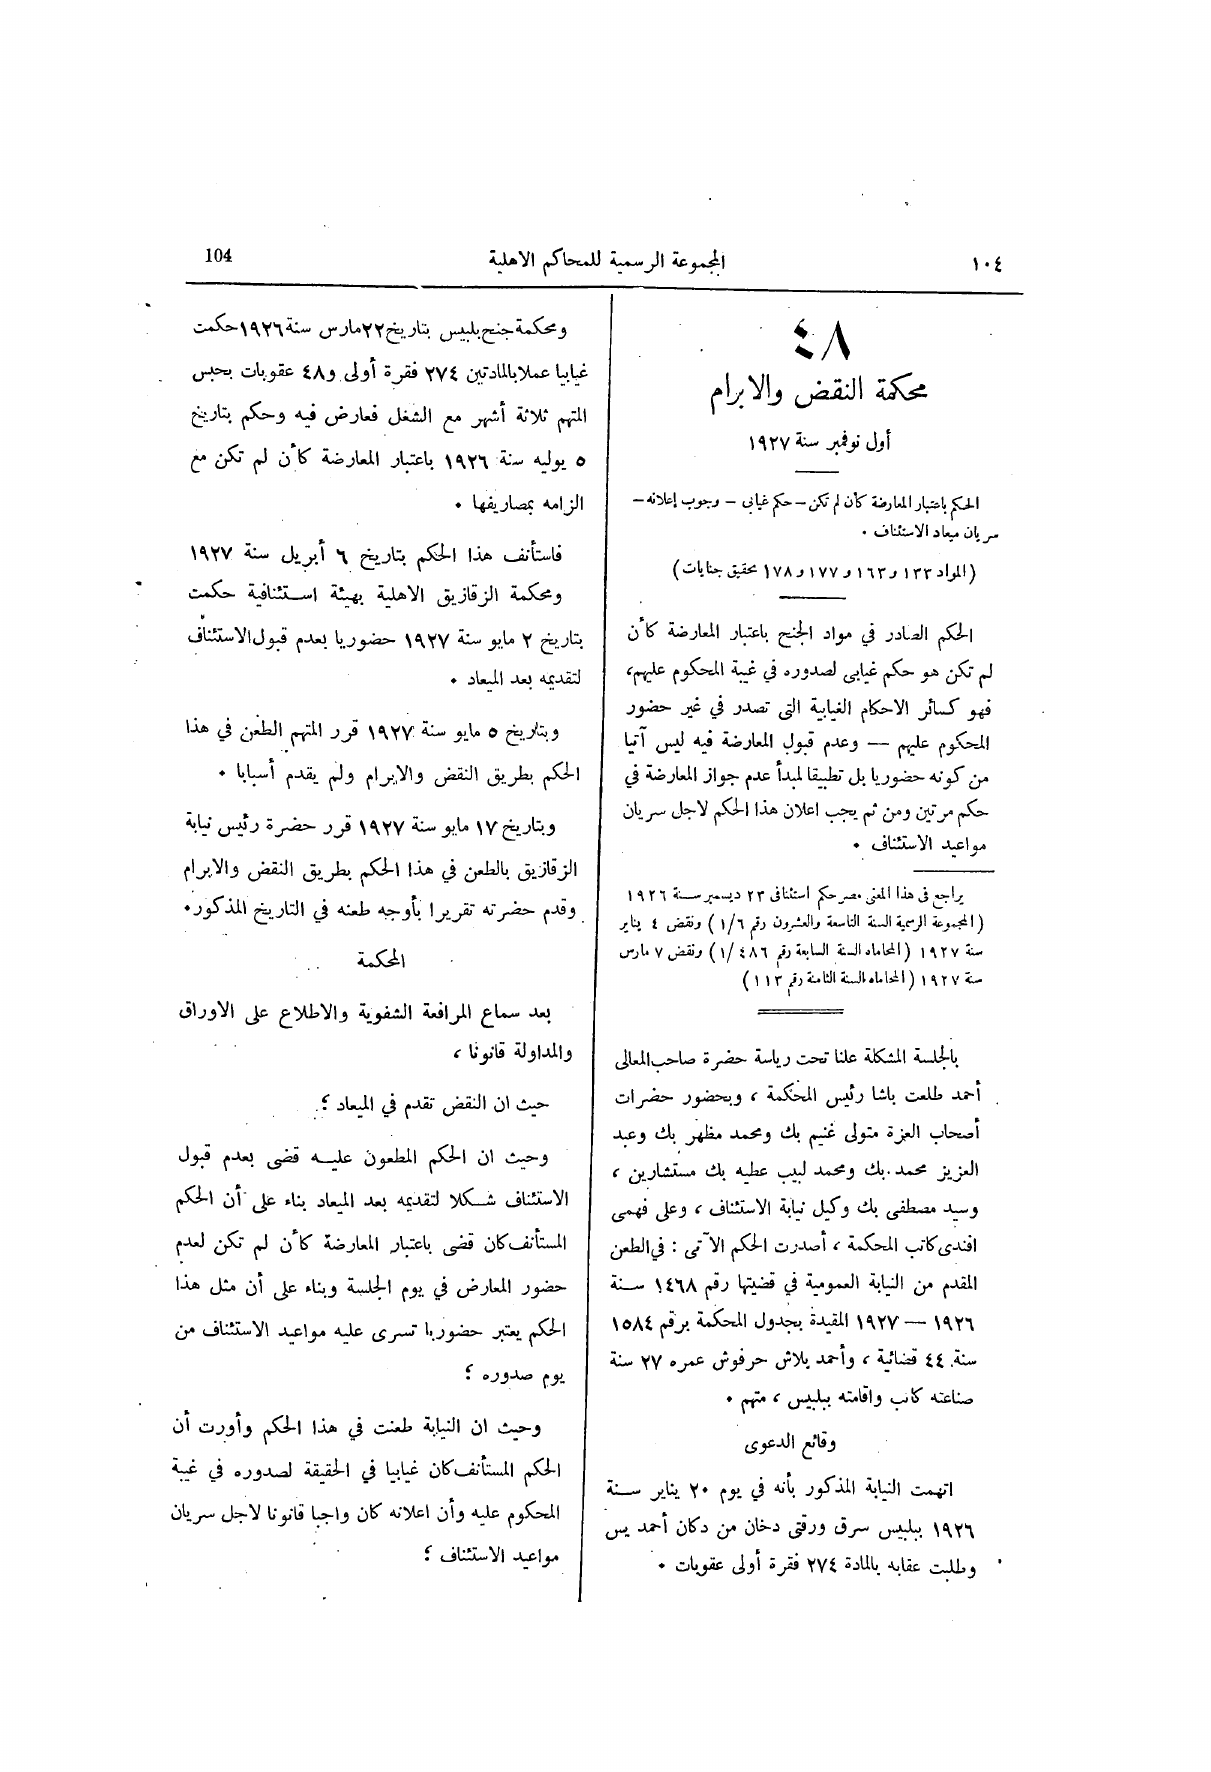 ١٠٤
المجموعة الرسمية للمحاكم الاهلية
104
٤٨
محكمة النقض والابرام
أول نوفمبر سنة ١٩٢٧
الحكم باعتبار المعارضة كأن لم تكن – حكم غيابي – وجوب إعلانه –
سريان ميعاد الاستئناف ٠
(المواد ١٣٣ و١٦٣ و١٧٧ و١٧٨ تحقيق جنايات)
الحكم الصادر في مواد الجنح باعتبار المعارضة كأن
لم تكن هو حكم غيابى لصدوره في غيبة المحكوم عليهم،
فهو كسائر الاحكام الغيابية التى تصدر في غير حضور
المحكوم عليهم — وعدم قبول المعارضة فيه ليس آتيا
من كونه حضوريا بل تطبيقا لمبدأ عدم جواز المعارضة في
حكم مرتين ومن ثم يجب اعلان هذا الحكم لاجل سريان
مواعيد الاستئناف ٠
يراجع فى هذا المعنى مصر حكم استئنافى ٢٣ ديسمبر سنة ١٩٢٦
(المجموعة الرسمية السنة التاسعة والعشرون رقم ١/٦) ونقض ٤ يناير
سنة ١٩٢٧ (المحاماه السنة السابعة رقم ١/٤٨٦) ونقض ٧ مارس
سنة ١٩٢٧ (المحاماه السنة الثامنة رقم ١١٣)
بالجلسة المشكلة علنا تحت رياسة حضرة صاحب المعالى
أحمد طلعت باشا رئيس المحكمة ، وبحضور حضرات
أصحاب العزة متولى غنيم بك ومحمد مظهر بك وعبد
العزيز محمد بك ومحمد لبيب عطيه بك مستشارين ،
وسيد مصطفى بك وكيل نيابة الاستئناف ، وعلى فهمى
افندى كاتب المحكمة ، أصدرت الحكم الآتى : في الطعن
المقدم من النيابة العمومية في قضيتها رقم ١٤٦٨ سنة
١٩٢٦ — ١٩٢٧ المقيدة بجدول المحكمة برقم ١٥٨٤
سنة ٤٤ قضائية ، وأحمد بلاش حرفوش عمره ٢٧ سنة
صناعته كاتب واقامته ببلبيس ، متهم ٠
وقائع الدعوى
اتهمت النيابة المذكور بأنه في يوم ٢٠ يناير سنة
١٩٢٦ ببلبيس سرق ورقتى دخان من دكان أحمد يس
وطلبت عقابه بالمادة ٢٧٤ فقرة أولى عقوبات ٠
ومحكمة جنح بلبيس بتاريخ ٢٢ مارس سنة ١٩٢٦ حكمت
غيابيا عملا بالمادتين ٢٧٤ فقرة أولى و٤٨ عقوبات بحبس
المتهم ثلاثة أشهر مع الشغل فعارض فيه وحكم بتاريخ
٥ يوليه سنة ١٩٢٦ باعتبار المعارضة كأن لم تكن مع
الزامه بمصاريفها ٠
فاستأنف هذا الحكم بتاريخ ٦ أبريل سنة ١٩٢٧
ومحكمة الزقازيق الاهلية بهيئة استئنافية حكمت
بتاريخ ٢ مايو سنة ١٩٢٧ حضوريا بعدم قبول الاستئناف
لتقديمه بعد الميعاد ٠
وبتاريخ ٥ مايو سنة ١٩٢٧ قرر المتهم الطعن في هذا
الحكم بطريق النقض والابرام ولم يقدم أسبابا ٠
وبتاريخ ١٧ مايو سنة ١٩٢٧ قرر حضرة رئيس نيابة
الزقازيق بالطعن في هذا الحكم بطريق النقض والابرام
وقدم حضرته تقريرا بأوجه طعنه في التاريخ المذكور٠
المحكمة
بعد سماع المرافعة الشفوية والاطلاع على الاوراق
والمداولة قانونا ،
حيث ان النقض تقدم في الميعاد ؛
وحيث ان الحكم المطعون عليه قضى بعدم قبول
الاستئناف شكلا لتقديمه بعد الميعاد بناء على أن الحكم
المستأنف كان قضى باعتبار المعارضة كأن لم تكن لعدم
حضور المعارض في يوم الجلسة وبناء على أن مثل هذا
الحكم يعتبر حضوريا تسرى عليه مواعيد الاستئناف من
يوم صدوره ؛
وحيث ان النيابة طعنت في هذا الحكم وأورت أن
الحكم المستأنف كان غيابيا في الحقيقة لصدوره في غيبة
المحكوم عليه وأن اعلانه كان واجبا قانونا لاجل سريان
مواعيد الاستئناف ؛